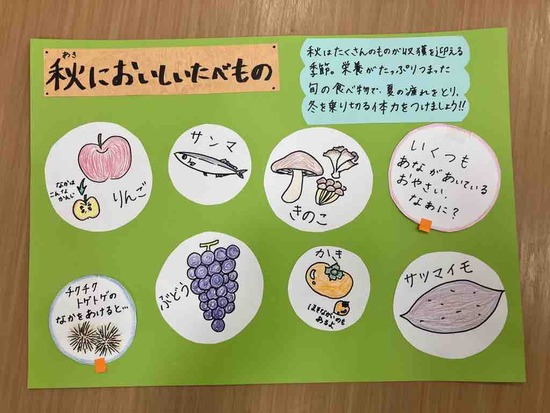 あき
秋においしいたべもの
秋はたくさんのものが収獲を迎える
季節。栄養がたっぷりつまった
旬の食べ物で、夏の疲れをとり、
冬を乗り切る体力をつけましょう!!
なかは
こんな
かんじ
りんご
サンマ
きのこ
いくつも
あながあいている
おやさい。
なぁに?
チクチク
トゲトゲの
なかをあけると…
ぶどう
かき
サツマイモ